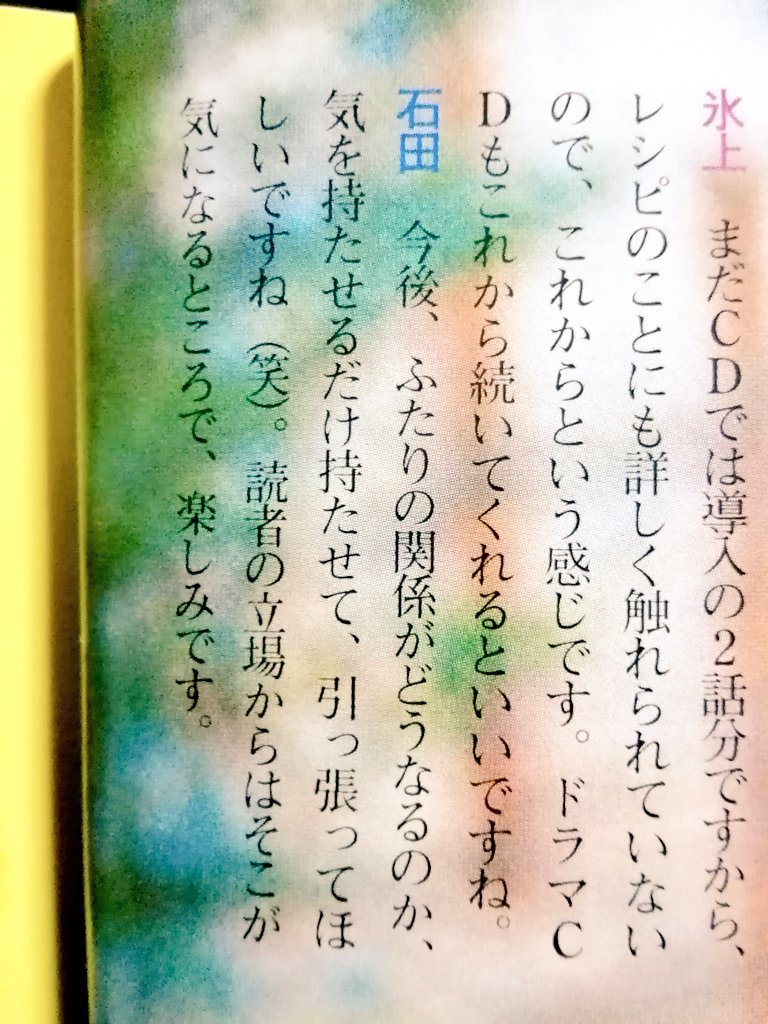 氷上　まだCDでは導入の2話分ですから、
レシピのことにも詳しく触れられていない
ので、これからという感じです。ドラマC
Dもこれから続いてくれるといいですね。
石田　今後、ふたりの関係がどうなるのか、
気を持たせるだけ持たせて、引っ張ってほ
しいですね（笑）。読者の立場からはそこが
気になるところで、楽しみです。